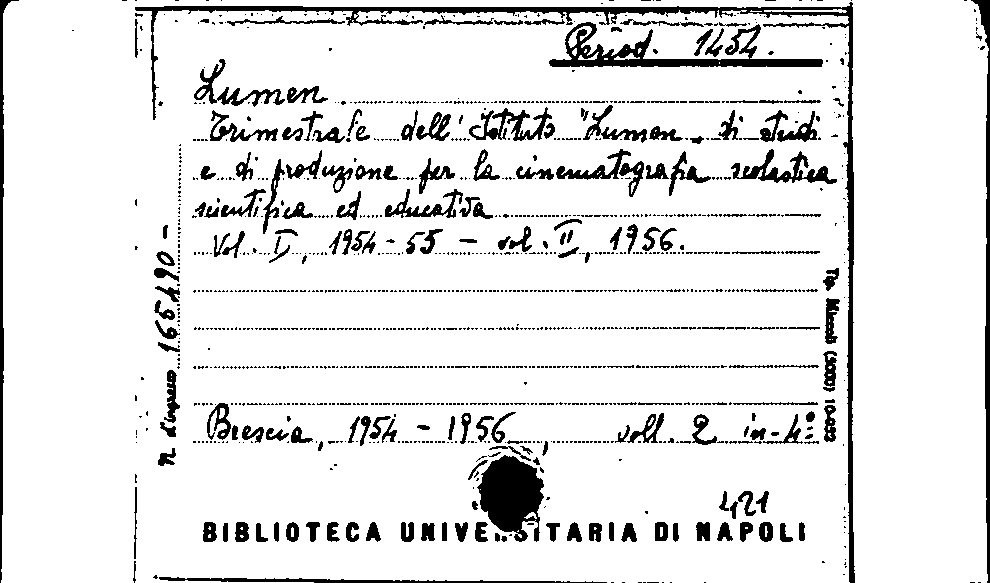 Period. 1454.
Lumen.
Trimestrale dell' Istituto "Lumen" di studi
e di produzione per la cinematografia scolastica
scientifica ed educativa.
Vol. I, 1954-55 - vol. II, 1956.
Brescia, 1954 - 1956, voll. 2 in-4°
421
BIBLIOTECA UNIVERSITARIA DI NAPOLI
n. d'ingresso 165490 -
Tip. Miccoli (5000) 10-952